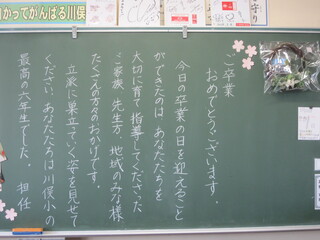 向かってがんばる川俣
ご卒業
おめでとうございます。
今日の卒業の日を迎えること
ができたのは、あなたたちを
大切に育て、指導してくださった
ご家族、先生方、地域のみな様
たくさんの方々のおかげです。
立派に巣立っていく姿を見せて
ください。あなたたちは川俣小の
最高の六年生でした。 担任